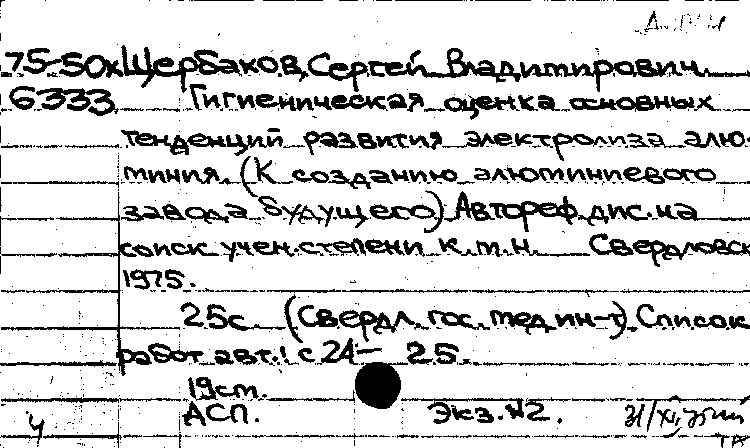 75-50к Щербаков, Сергей Владимирович.
6333 Гигиеническая оценка основных
тенденций развития электролиза алю-
миния. (К созданию алюминиевого
завода будущего) Автореф. дис. на
соиск учен. степени к.м.н. Свердловск
1975.
25с. (Свердл. гос. мед ин-т). Список
работ авт.: с 24 - 25.
19см.
АСП. Экз. №2.
ч